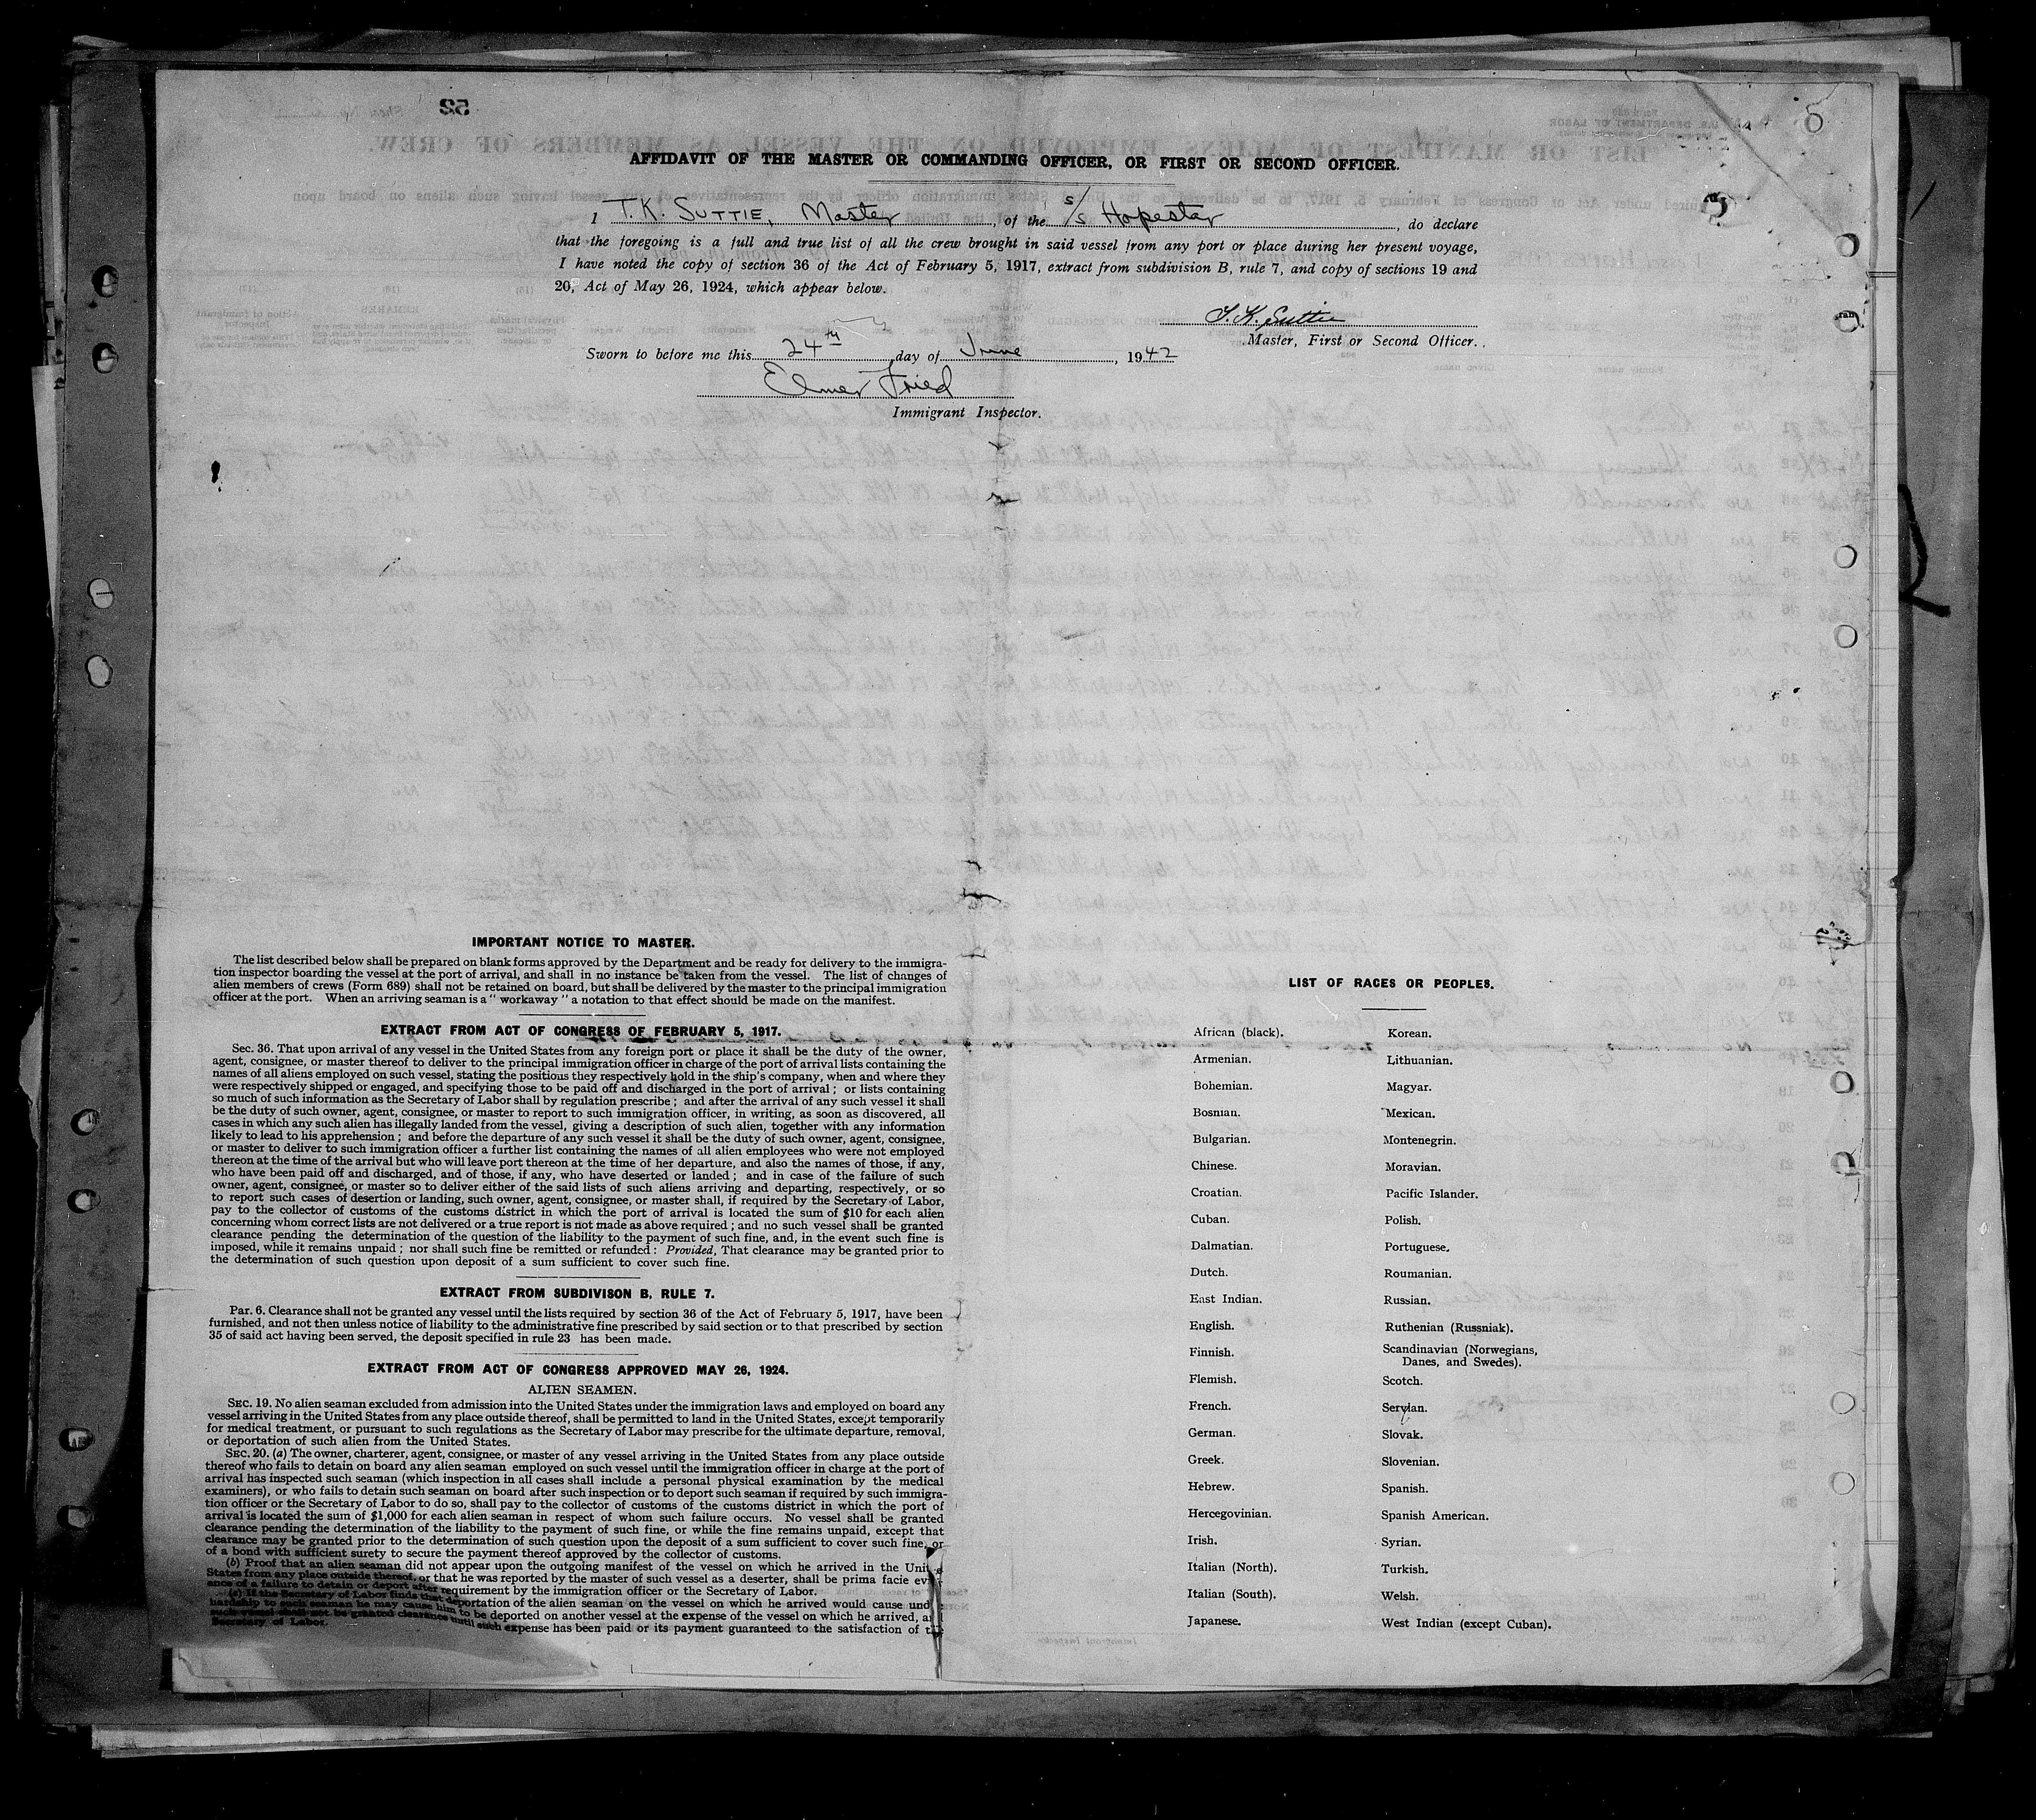 52
AFFIDAVIT OF THE MASTER OR COMMANDING OFFICER, OR FIRST OR SECOND OFFICER.
I T. K. SUTTIE, Master, of the s/s Hopestar, do declare
that the foregoing is a full and true list of all the crew brought in said vessel from any port or place during her present voyage,
I have noted the copy of section 36 of the Act of February 5, 1917, extract from subdivision B, rule 7, and copy of sections 19 and
20, Act of May 26, 1924, which appear below.
T. K. Suttie
Master, First or Second Officer.
Sworn to before me this 24th day of June, 1942
Elmer Fried
Immigrant Inspector.
IMPORTANT NOTICE TO MASTER.
The list described below shall be prepared on blank forms approved by the Department and be ready for delivery to the immigra-
tion inspector boarding the vessel at the port of arrival, and shall in no instance be taken from the vessel. The list of changes of
alien members of crews (Form 689) shall not be retained on board, but shall be delivered by the master to the principal immigration
officer at the port. When an arriving seaman is a " workaway " a notation to that effect should be made on the manifest.
EXTRACT FROM ACT OF CONGRESS OF FEBRUARY 5, 1917.
Sec. 36. That upon arrival of any vessel in the United States from any foreign port or place it shall be the duty of the owner,
agent, consignee, or master thereof to deliver to the principal immigration officer in charge of the port of arrival lists containing the
names of all aliens employed on such vessel, stating the positions they respectively hold in the ship's company, when and where they
were respectively shipped or engaged, and specifying those to be paid off and discharged in the port of arrival ; or lists containing
so much of such information as the Secretary of Labor shall by regulation prescribe ; and after the arrival of any such vessel it shall
be the duty of such owner, agent, consignee, or master to report to such immigration officer, in writing, as soon as discovered, all
cases in which any such alien has illegally landed from the vessel, giving a description of such alien, together with any information
likely to lead to his apprehension ; and before the departure of any such vessel it shall be the duty of such owner, agent, consignee,
or master to deliver to such immigration officer a further list containing the names of all alien employees who were not employed
thereon at the time of the arrival but who will leave port thereon at the time of her departure, and also the names of those, if any,
who have been paid off and discharged, and of those, if any, who have deserted or landed ; and in case of the failure of such
owner, agent, consignee, or master so to deliver either of the said lists of such aliens arriving and departing, respectively, or so
to report such cases of desertion or landing, such owner, agent, consignee, or master shall, if required by the Secretary of Labor,
pay to the collector of customs of the customs district in which the port of arrival is located the sum of $10 for each alien
concerning whom correct lists are not delivered or a true report is not made as above required ; and no such vessel shall be granted
clearance pending the determination of the question of the liability to the payment of such fine, and, in the event such fine is
imposed, while it remains unpaid ; nor shall such fine be remitted or refunded : Provided, That clearance may be granted prior to
the determination of such question upon deposit of a sum sufficient to cover such fine.
EXTRACT FROM SUBDIVISON B, RULE 7.
Par. 6. Clearance shall not be granted any vessel until the lists required by section 36 of the Act of February 5, 1917, have been
furnished, and not then unless notice of liability to the administrative fine prescribed by said section or to that prescribed by section
35 of said act having been served, the deposit specified in rule 23 has been made.
EXTRACT FROM ACT OF CONGRESS APPROVED MAY 26, 1924.
ALIEN SEAMEN.
Sec. 19. No alien seaman excluded from admission into the United States under the immigration laws and employed on board any
vessel arriving in the United States from any place outside thereof, shall be permitted to land in the United States, except temporarily
for medical treatment, or pursuant to such regulations as the Secretary of Labor may prescribe for the ultimate departure, removal,
or deportation of such alien from the United States.
Sec. 20. (a) The owner, charterer, agent, consignee, or master of any vessel arriving in the United States from any place outside
thereof who fails to detain on board any alien seaman employed on such vessel until the immigration officer in charge at the port of
arrival has inspected such seaman (which inspection in all cases shall include a personal physical examination by the medical
examiners), or who fails to detain such seaman on board after such inspection or to deport such seaman if required by such immigra-
tion officer or the Secretary of Labor to do so, shall pay to the collector of customs of the customs district in which the port of
arrival is located the sum of $1,000 for each alien seaman in respect of whom such failure occurs. No vessel shall be granted
clearance pending the determination of the liability to the payment of such fine, or while the fine remains unpaid, except that
clearance may be granted prior to the determination of such question upon the deposit of a sum sufficient to cover such fine, or
of a bond with sufficient surety to secure the payment thereof approved by the collector of customs.
(b) Proof that an alien seaman did not appear upon the outgoing manifest of the vessel on which he arrived in the Unit
States from any place outside thereof, or that he was reported by the master of such vessel as a deserter, shall be prima facie ev
ance of a failure to detain or deport after requirement by the immigration officer or the Secretary of Labor.
(c) If the Secretary of Labor finds that deportation of the alien seaman on the vessel on which he arrived would cause und
hardship to such seaman he may cause him to be deported on another vessel at the expense of the vessel on which he arrived, a
such vessel shall not be granted clearance until such expense has been paid or its payment guaranteed to the satisfaction of t
Secretary of Labor.
LIST OF RACES OR PEOPLES.
African (black). Korean.
Armenian. Lithuanian.
Bohemian. Magyar.
Bosnian. Mexican.
Bulgarian. Montenegrin.
Chinese. Moravian.
Croatian. Pacific Islander.
Cuban. Polish.
Dalmatian. Portuguese.
Dutch. Roumanian.
East Indian. Russian.
English. Ruthenian (Russniak).
Finnish. Scandinavian (Norwegians,
Danes, and Swedes).
Flemish. Scotch.
French. Servian.
German. Slovak.
Greek. Slovenian.
Hebrew. Spanish.
Hercegovinian. Spanish American.
Irish. Syrian.
Italian (North). Turkish.
Italian (South). Welsh.
Japanese. West Indian (except Cuban).